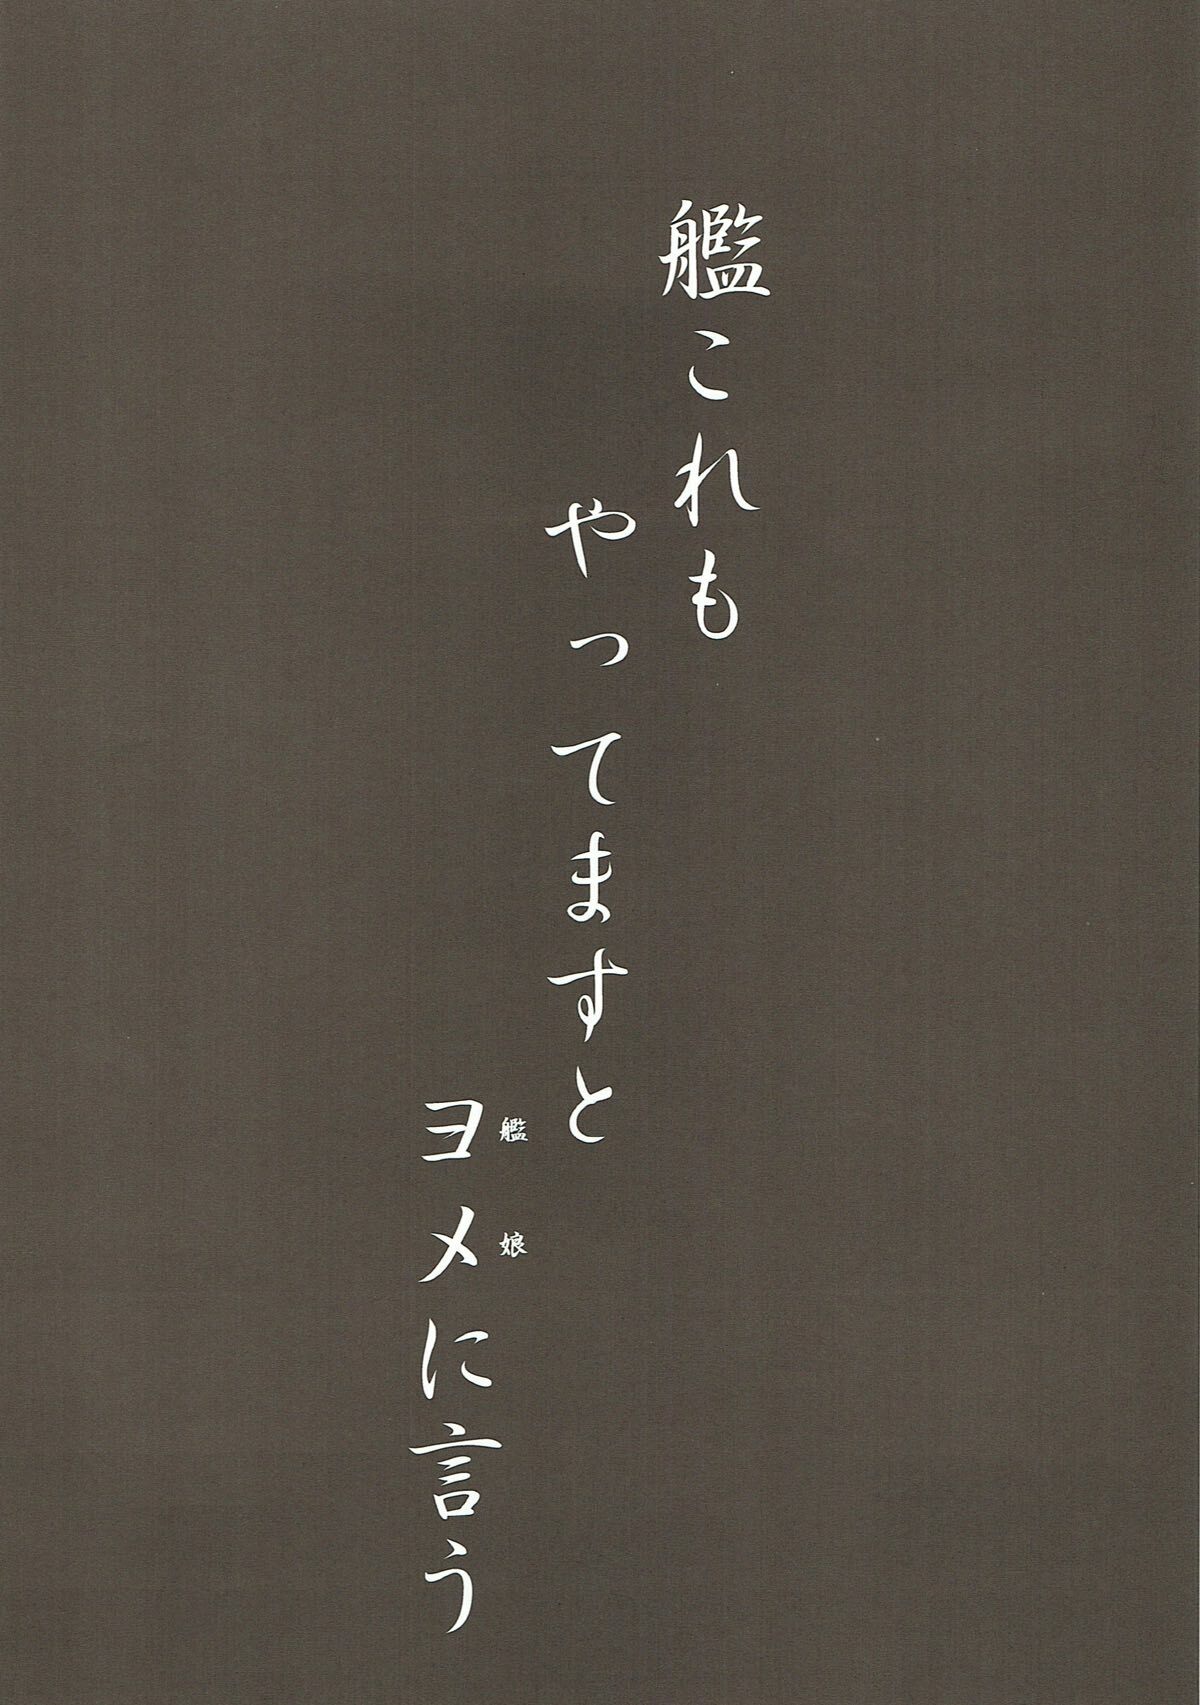 艦これも
やってますと
ヨメに言う
艦娘